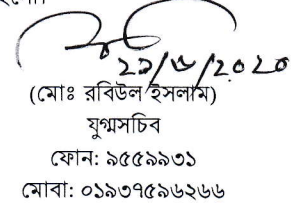 ২১/৬/২০২০
(মোঃ রবিউল ইসলাম)
যুগ্মসচিব
ফোন: ৯৫৫৯৯৩১
মোবা: ০১৯৩৭৫৯৬২৬৬